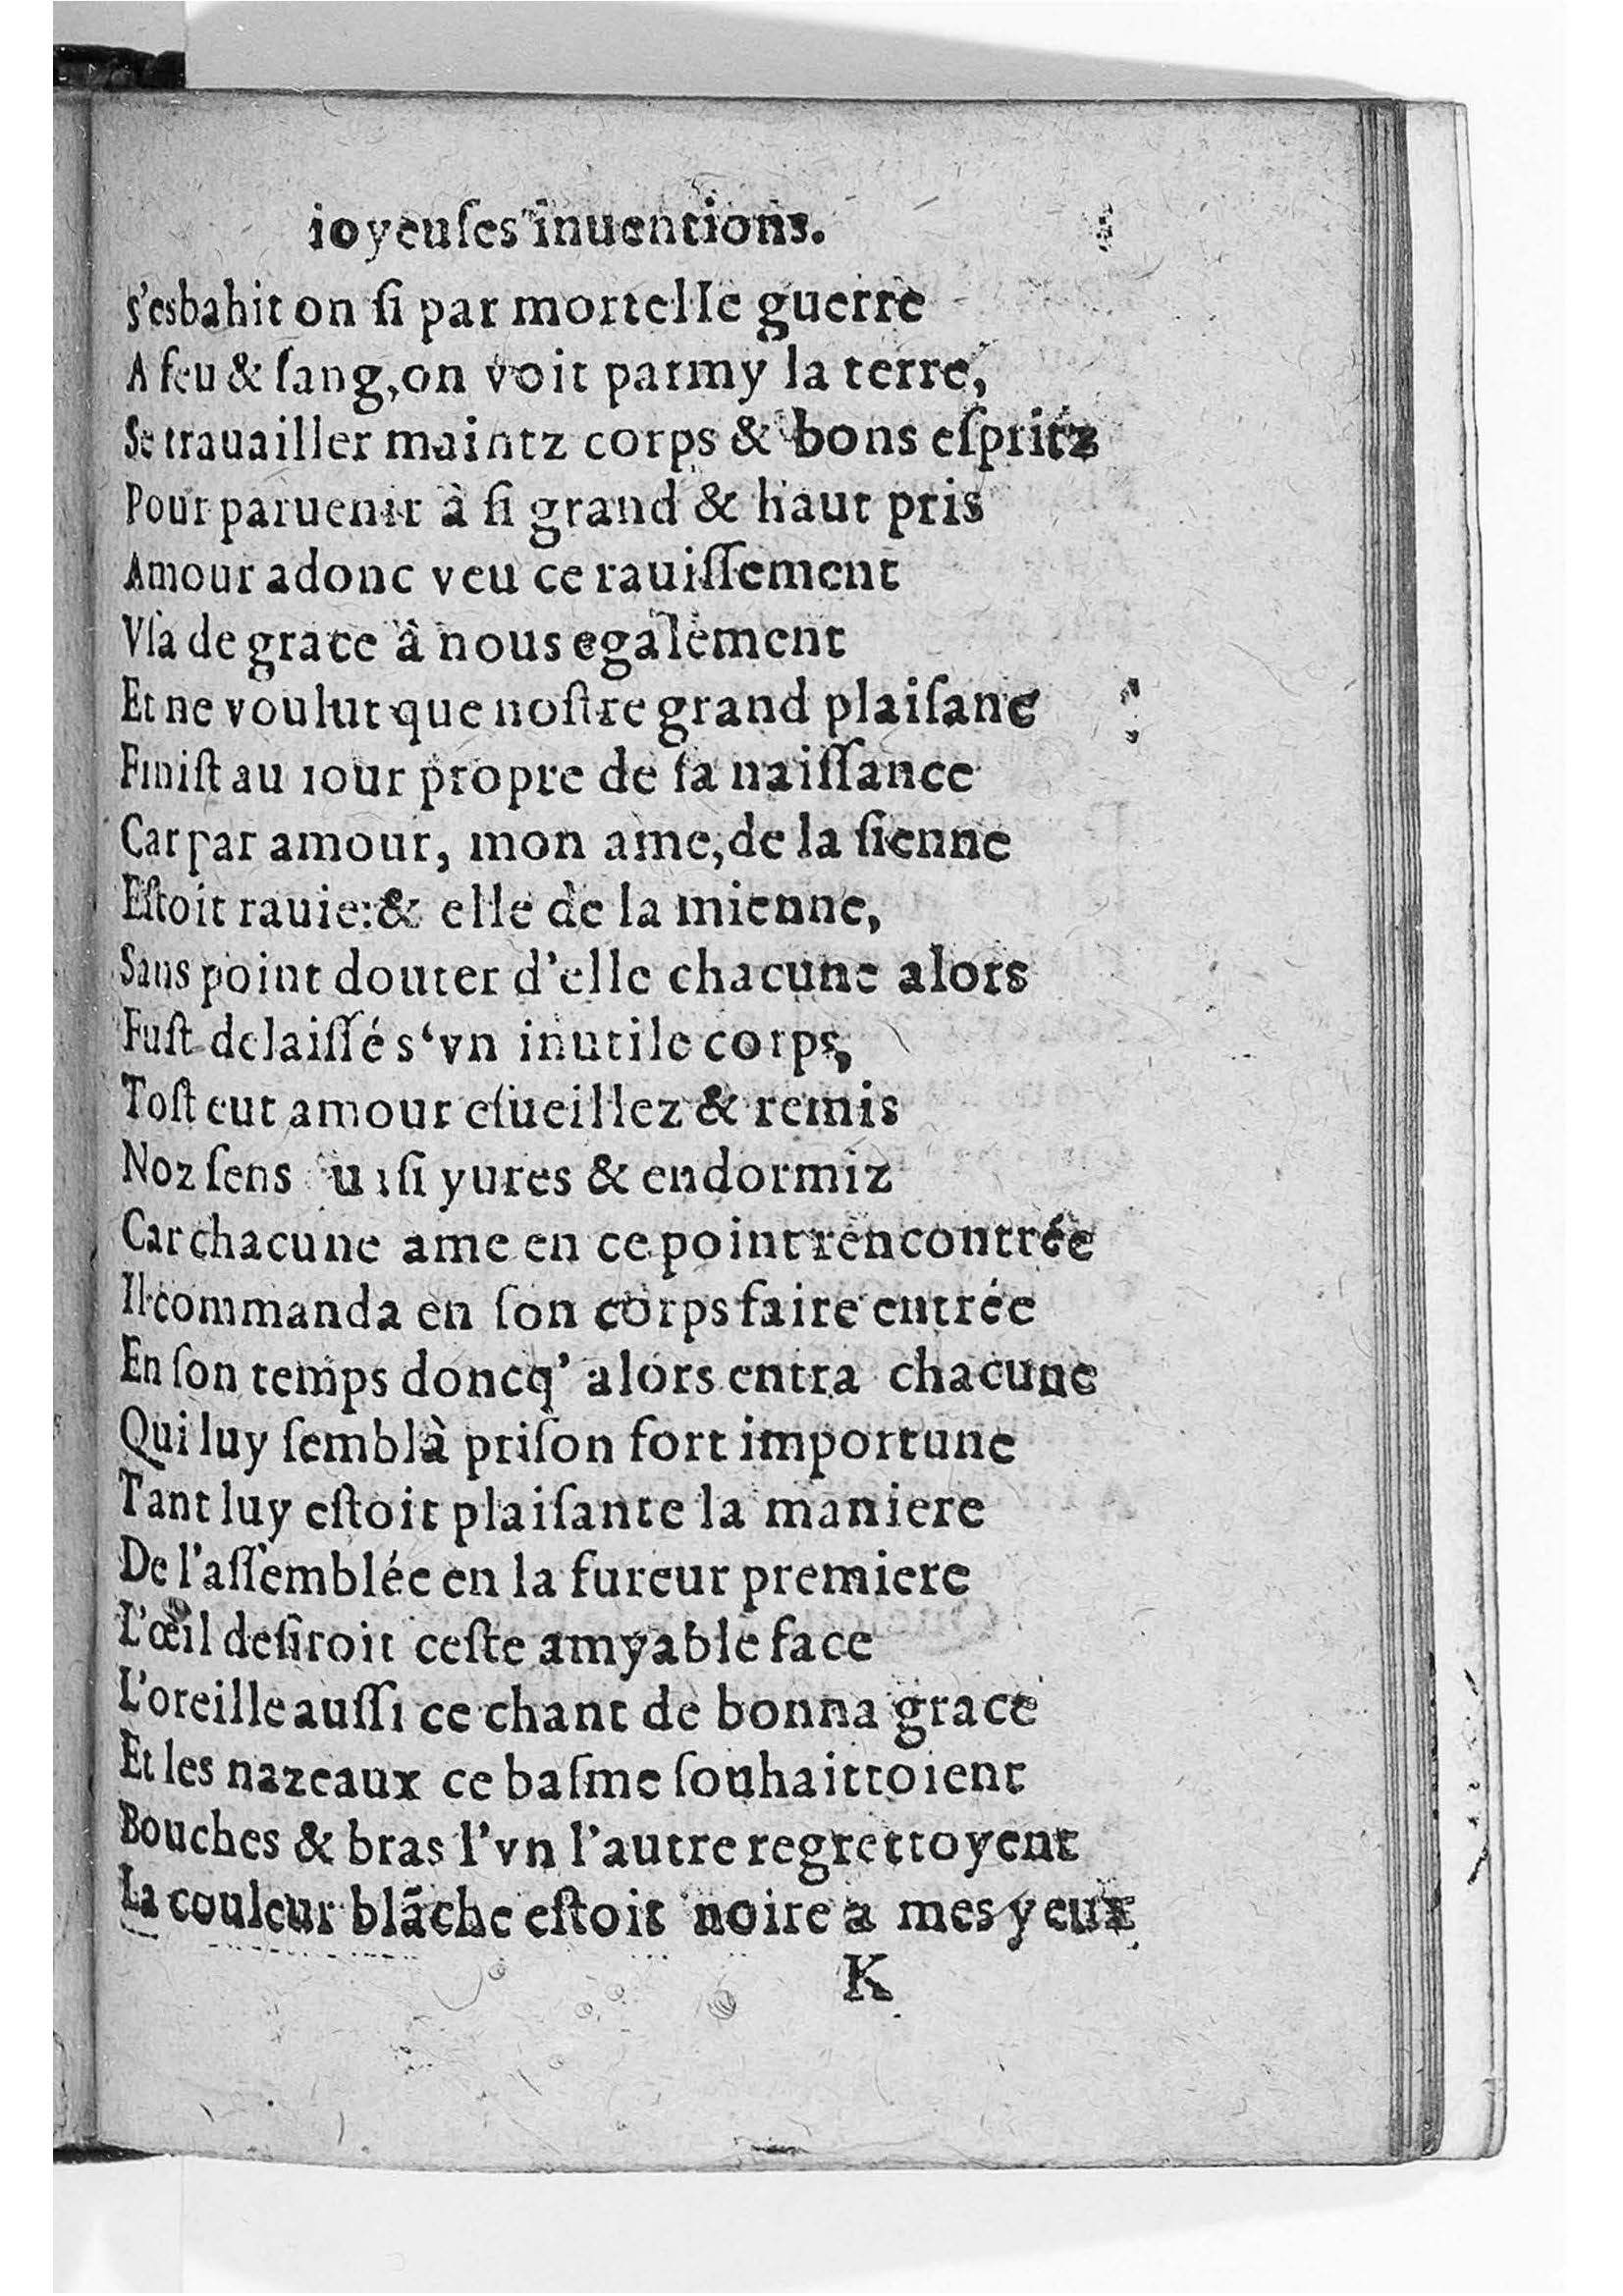 ioyeuſes inuentions.
s'esbahit on ſi par mortelle guerre
A feu & ſang, on voit parmy la terre,
Se trauailler maintz corps & bons eſpritz
Pour paruenir à ſi grand & haut pris
Amour adonc veu ce rauiſſement
Vſa de grace à nous egalement
Et ne voulut que noſtre grand plaiſanc
Finiſt au iour propre de ſa naiſſance
Car par amour, mon ame, de la ſienne
Eſtoit rauie: & elle de la mienne,
Sans point douter d'elle chacune alors
Fuſt delaiſſé s'vn inutile corps,
Toſt eut amour eſueillez & remis
Noz ſens ſi yures & endormiz
Car chacune ame en ce point rencontrée
Il commanda en ſon corps faire entrée
En ſon temps doncq' alors entra chacune
Qui luy ſemblà priſon fort importune
Tant luy eſtoit plaiſante la maniere
De l'aſſemblée en la fureur premiere
L'œil deſiroit ceſte amyable face
L'oreille auſſi ce chant de bonna grace
Et les nazeaux ce baſme ſouhaittoient
Bouches & bras l'vn l'autre regrettoyent
La couleur blãche eſtoit noire a mes yeux
K